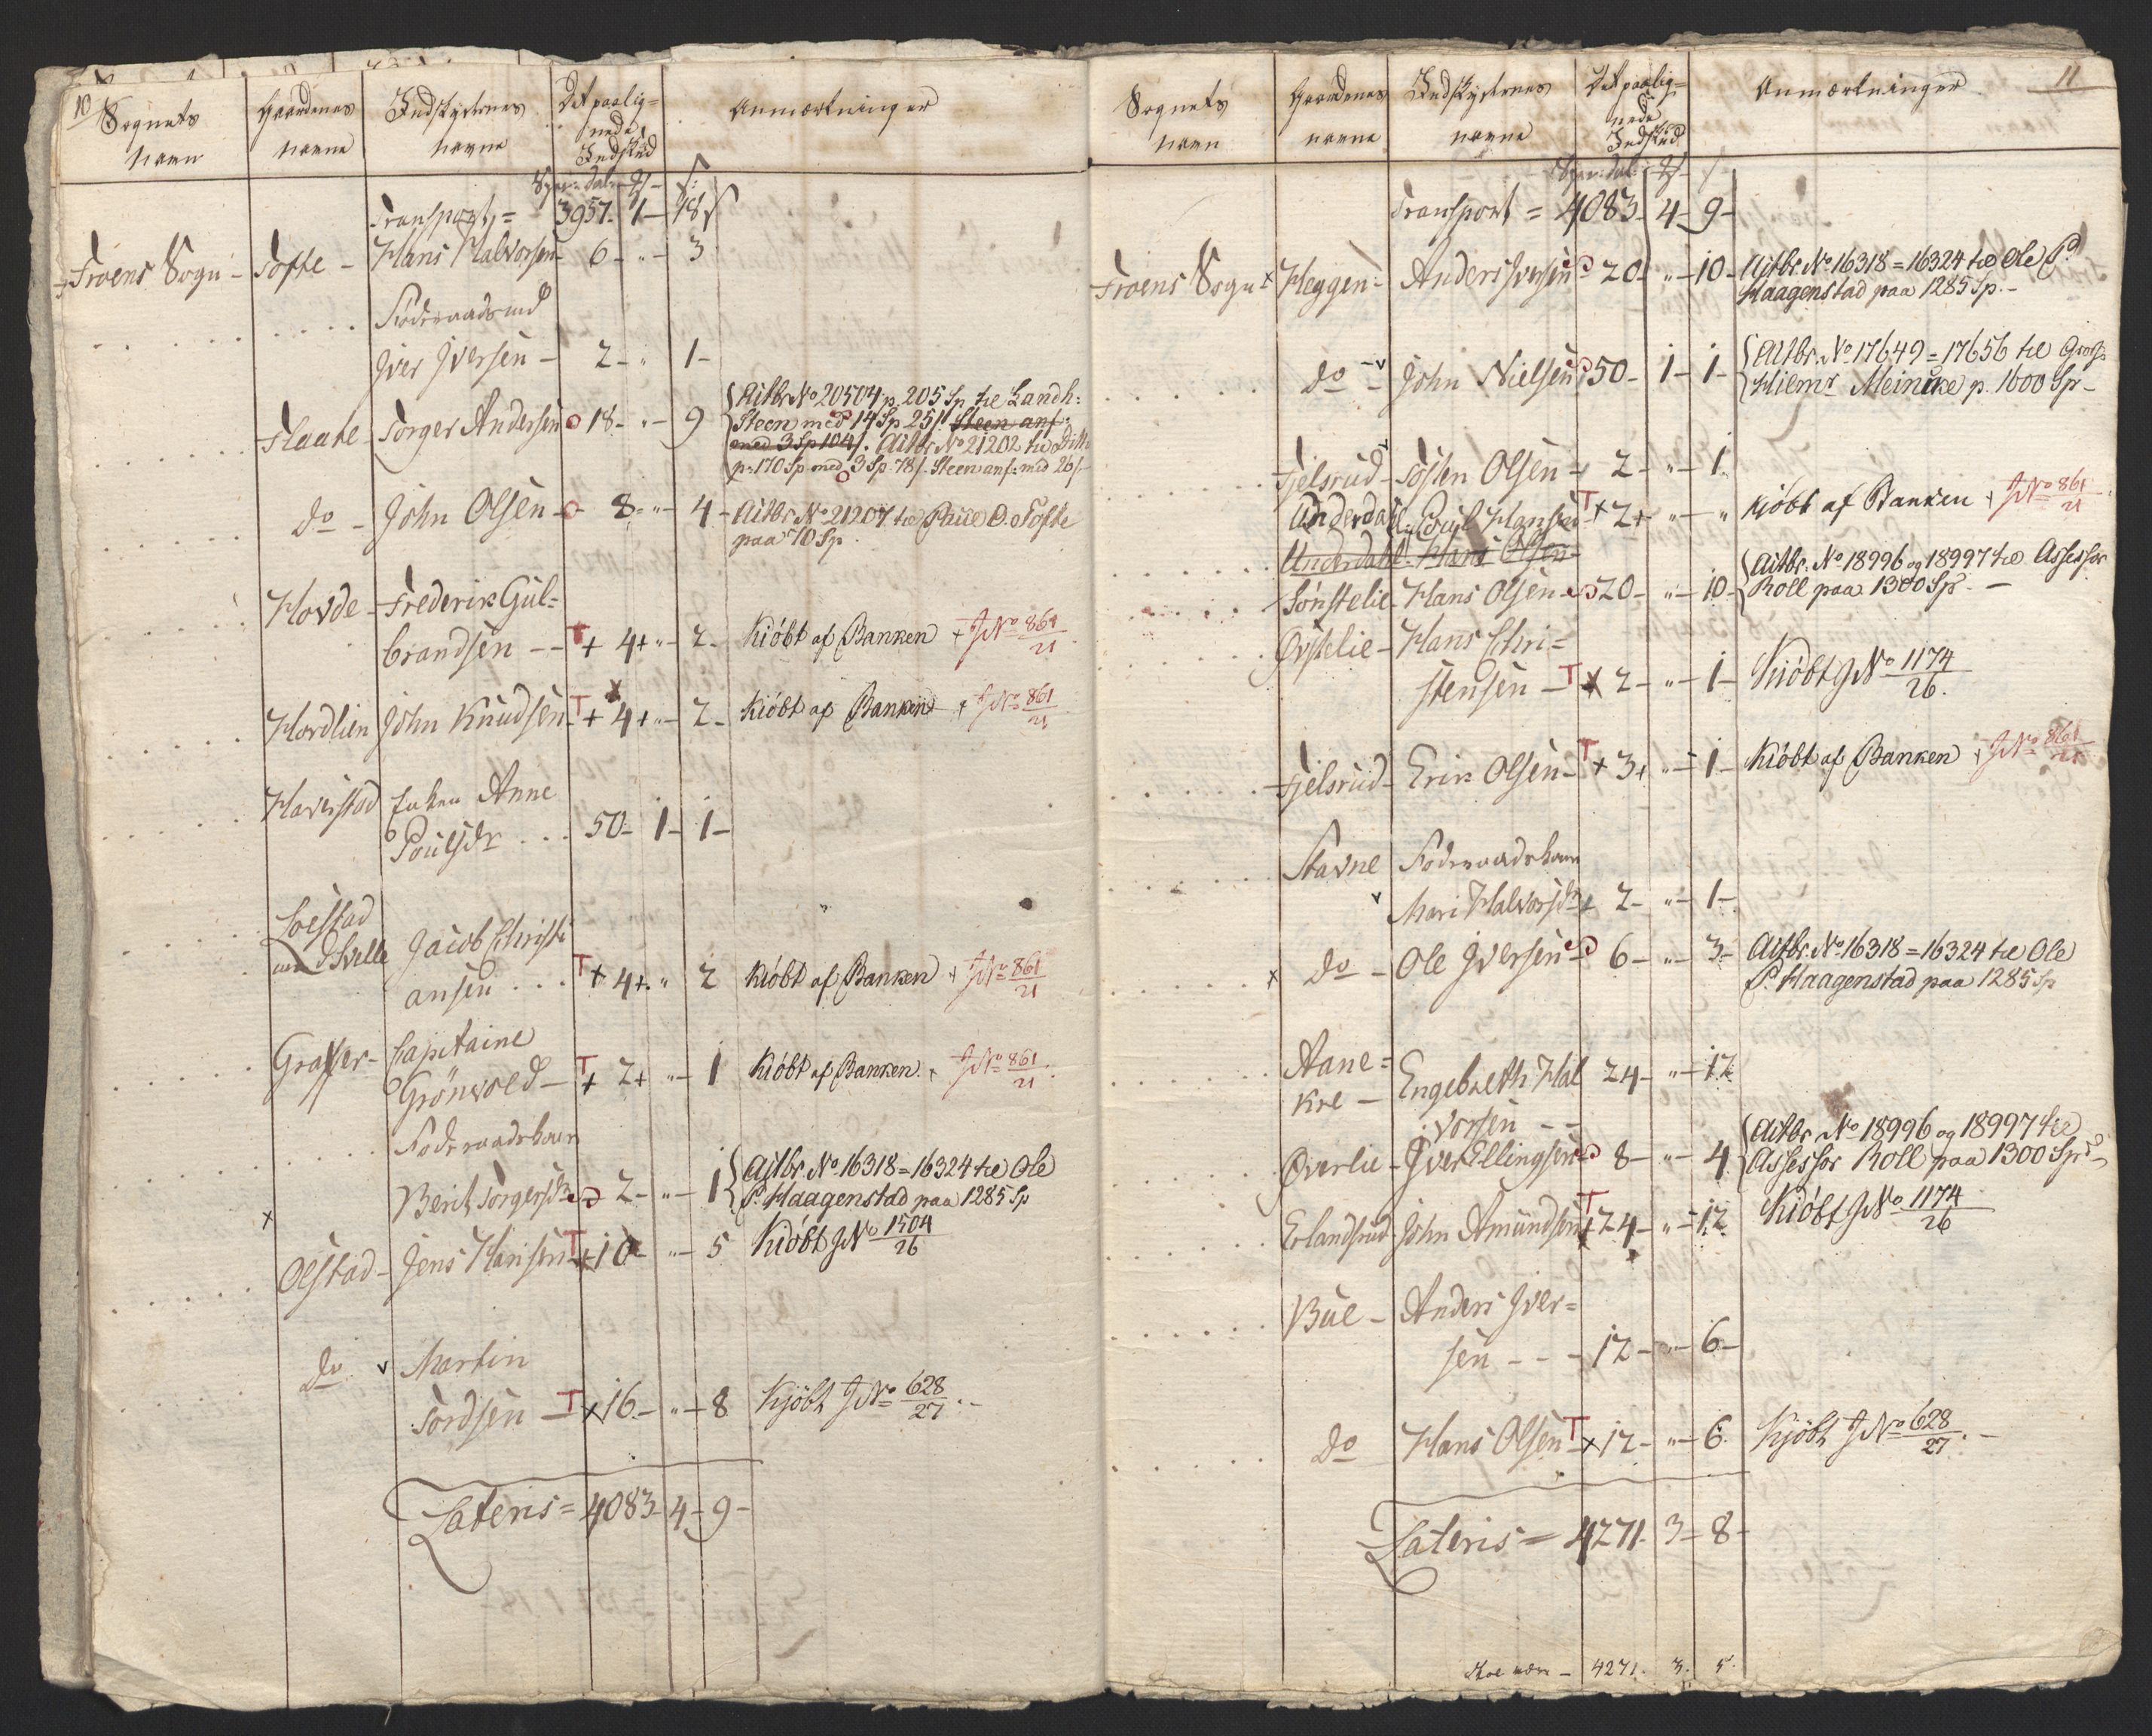 10
Sognets Navn | Gaardenes navne | Indskydernes navne | Det paalignede Indskud | Anmærkninger
Spec: Daler – ß – s:
Transport, = 3957. 1 – 18 s
Froens Sogn – Tofte – Hans Halvorsen – 6 – " – 3
Foderaadsmd
Iver Iversen – 2 – " 1 –
Flaate – Torger Andersen 18 – " – 9 Actbr. No 20504 p. 205 Sp til Landh:
Steen med 14 Sp 25 s Steen anf:
med 3 Sp 104 s. Actbr. No 21202 til Ditto
p: 170 Sp med 3 Sp. 78 s. Steen anf: med 26 s.
do – John Olsen – 8 – " – 4 – Actbr. No 21207 til Paul O. Tofte
paa 10 Sp.
Hovde – Frederik Gul=
brandsen – – T + 4 + " – 2 – Kiöbt af Banken + J No 861/21
Hovdlien John Knudsen – T + 4 + " – 2 – Kiöbt af Banken + J No 861/21
Haverstad Enken Anne
Poulsdr . . . 50 – 1 – 1 –
Solstad
Jacob Christi
ansen . . . T + 4 +. " 2 Kiöbt af Banken + J No 861/21
Graffer – Capitaine
Grönvold – T + 2 + " – 1 Kiöbt af Banken. + J No 861/21
Foderaadskone
Berit Torgersdr 2 – " – 1 Actbr. No 16318 = 16324 til Ole
P. Haagenstad paa 1285 Sp
Olstad – Jens Hansen T + 10 " – 5 Kiöbt J No 1504/26
do Martin
Tordsen – T x 16 – " – 8 Kjöbt J No 628/27 . –
Lateris = 4083 – 4 – 9 –
11
Sognets Navn | Gaardenes navne | Indskydernes navne | Det paalignede Indskud | Anmærkninger
Spec: Dal: – ß – s
Transport = 4083 – 4 – 9 –
Froens Sogn x Heggen – Anders Iversen 20 – " – 10 – Actbr. No 16318 = 16324 til Ole P.
Haagenstad paa 1285 Sp. –
do – John Nielsen 50 – 1 – 1 – Actbr. No 17649 = 17656 til Gross
Hiemr Meincke p. 1600 Sp –
Fjelsrud – Tosten Olsen – 2 – " – 1.
Underdahl – Poul Hansen T + 2 + " – " Kjöbt af Banken + J No 861/21
Underdahl – Hans Olsen
Sönstelie – Hans Olsen – 20 – " – 10 – Actbr. No 18996 og 18997 til Assessor
Roll paa 1300 Sp. –
Övstelie – Hans Chri=
stensen – T x 2 – " – 1 – Kiöbt J No 1174/26.
Fjelsrud – Erik Olsen – T + 3 + " – 1 – Kiöbt af Banken + J No 861/21
Stavne Foderaadskone
Mari Halvorsdr 2 – " – 1 –
x do – Ole Iversen 6 – " – 3 – Actbr. No 16318 = 16324 til Ole
P. Haagenstad paa 1285 Sp
Aane=
kre – Engebreth Hal 24 – " – 12
vorsen – –
Överlie – Iver Ellingsen 8 – " – 4 Actbr. No 18996 og 18997 til
Assessor Roll paa 1300 Spd –
Erlandsrud John Amundsen T + 24 – " – 12 Kiöbt J No 1174/26
Bue – Anders Iver=
sen – – – 12 – " – 6 –
do Hans Olsen T x 12 – " – 6. Kjöbt J No 628/27 . –
Lateris = 4271. 3 – 8 –
Skal være – 4271. 3. 5.